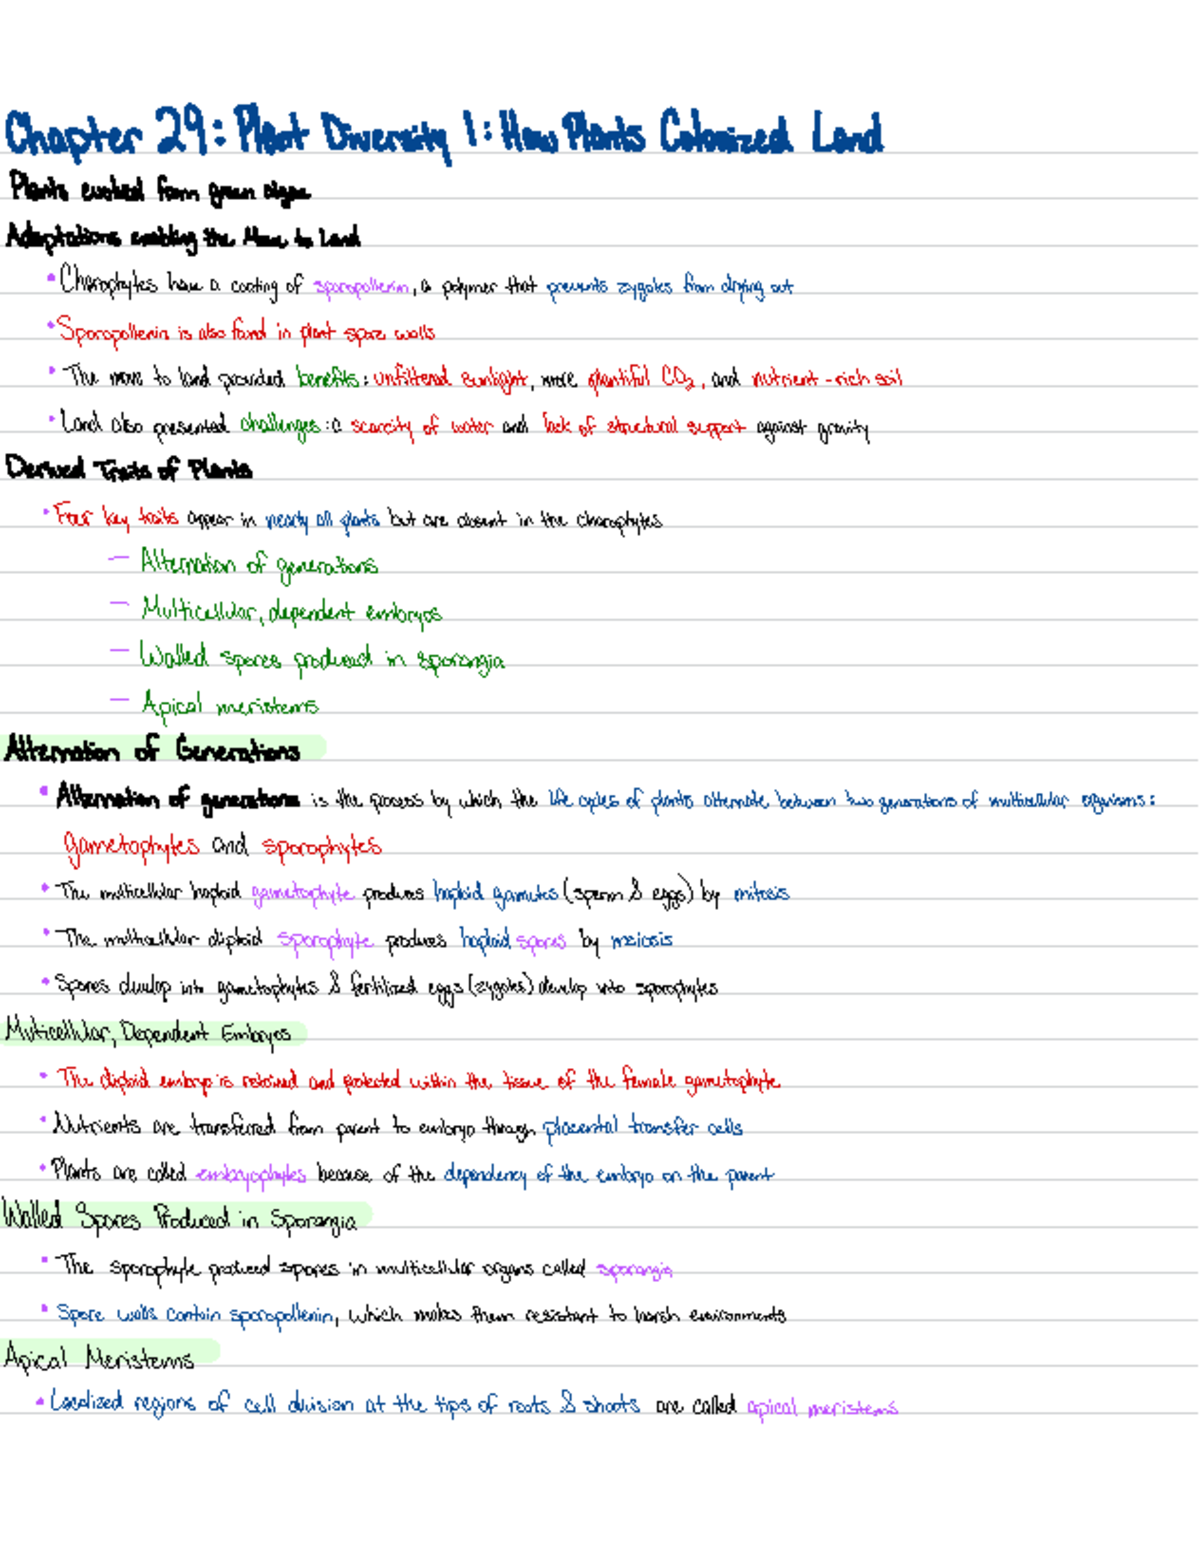 Chapter 29: Plant Diversity 1: How Plants Colonized Land
Plants evolved from green algae
Adaptations enabling the Move to Land
• Charophytes have a coating of sporopollenin, a polymer that prevents zygotes from drying out
• Sporopollenin is also found in plant spore walls
• The move to land provided benefits: unfiltered sunlight, more plentiful CO₂, and nutrient-rich soil
• Land also presented challenges: a scarcity of water and lack of structural support against gravity
Derived Traits of Plants
• Four key traits appear in nearly all plants but are absent in the charophytes
— Alternation of generations
— Multicellular, dependent embryos
— Walled spores produced in sporangia
— Apical meristems
Alternation of Generations
• Alternation of generations is the process by which the life cycles of plants alternate between two generations of multicellular organisms:
gametophytes and sporophytes
• The multicellular haploid gametophyte produces haploid gametes (sperm & eggs) by mitosis
• The multicellular diploid sporophyte produces haploid spores by meiosis
• Spores develop into gametophytes & fertilized eggs (zygotes) develop into sporophytes
Multicellular, Dependent Embryos
• The diploid embryo is retained and protected within the tissue of the female gametophyte
• Nutrients are transferred from parent to embryo through placental transfer cells
• Plants are called embryophytes because of the dependency of the embryo on the parent
Walled Spores Produced in Sporangia
• The sporophyte produced spores in multicellular organs called sporangia
• Spore walls contain sporopollenin, which makes them resistant to harsh environments
Apical Meristems
• Localized regions of cell division at the tips of roots & shoots are called apical meristems